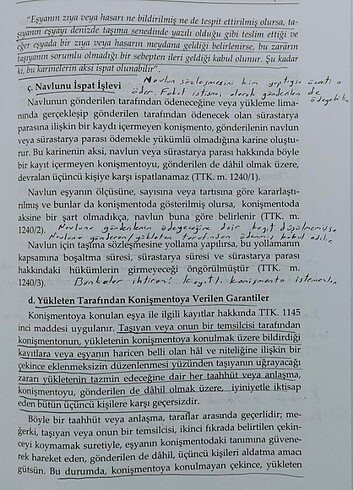 "Eşyanın zıya veya hasarı ne bildirilmiş ne de tespit ettirilmiş olursa, ta-
şıyanın eşyayı denizde taşıma senedinde yazılı olduğu gibi teslim ettiği ve
eğer eşyada bir zıya veya hasarın meydana geldiği belirlenirse, bu zararın
taşıyanın sorumlu olmadığı bir sebepten ileri geldiği kabul olunur. Şu kadar
ki, bu karinelerin aksi ispat olunabilir".
Navlun sözleşmesini kim yaptıysa ücreti o
ç. Navlunu İspat İşlevi
öder. Fakat istisnai olarak gönderilen de
ödeyebilir
Navlunun gönderilen tarafından ödeneceğine veya yükleme lima-
nında gerçekleşip gönderilen tarafından ödenecek olan sürastarya
parasına ilişkin bir kaydı içermeyen konişmento, gönderilenin navlun
veya sürastarya parası ödemekle yükümlü olmadığına karine oluştu-
rur. Bu karinenin aksi, navlun veya sürastarya parası hakkında böyle
bir kayıt içermeyen konişmentoyu, gönderilen de dâhil olmak üzere,
devralan üçüncü kişiye karşı ispatlanamaz (TTK. m. 1240/1).
Navlun eşyanın ölçüsüne, sayısına veya tartısına göre kararlaştı-
rılmış ve bunlar da konişmentoda gösterilmiş olursa, konişmentoda
aksine bir şart olmadıkça, navlun buna göre belirlenir (TTK. m.
1240/2).
Navlunu gönderilenin ödeyeceğine dair kayıt düşülmemişse
Navlunu gönderen/yükleten tarafından ödenmiş kabul edilir
Navlun için taşıma sözleşmesine yollama yapılırsa, bu yollamanın
kapsamına boşaltma süresi, sürastarya süresi ve sürastarya parası
hakkındaki hükümlerin girmeyeceği öngörülmüştür (TTK. m.
1240/3).
Bankalar ihtirazi kayıtlı konişmento istemezler
d. Yükleten Tarafından Konişmentoya Verilen Garantiler
Konişmentoya konulan eşya ile ilgili kayıtlar hakkında TTK. 1145
inci maddesi uygulanır. Taşıyan veya onun bir temsilcisi tarafından
konişmentonun, yükletenin konişmentoya konulmak üzere bildirdiği
kayıtlara veya eşyanın haricen belli olan hâl ve niteliğine ilişkin bir
çekince eklenmeksizin düzenlenmesi yüzünden taşıyanın uğrayacağı
zararı yükletenin tazmin edeceğine dair her taahhüt veya anlaşma,
konişmentoyu, gönderilen de dâhil olmak üzere, iyiniyetle iktisap
eden bütün üçüncü kişilere karşı geçersizdir.
Böyle bir taahhüt veya anlaşma, taraflar arasında geçerlidir; me-
ğerki, taşıyan veya onun bir temsilcisi, ikinci fıkrada belirtilen çekin-
ceyi koymamak suretiyle, eşyanın konişmentodaki tanımına güvene-
rek hareket eden, gönderilen de dâhil, üçüncü kişileri aldatma amacı
gütsün. Bu durumda, konişmentoya konulmayan çekince, yükleten